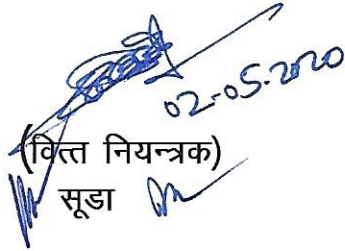 02-05-2020
(वित्त नियन्त्रक)
सूडा